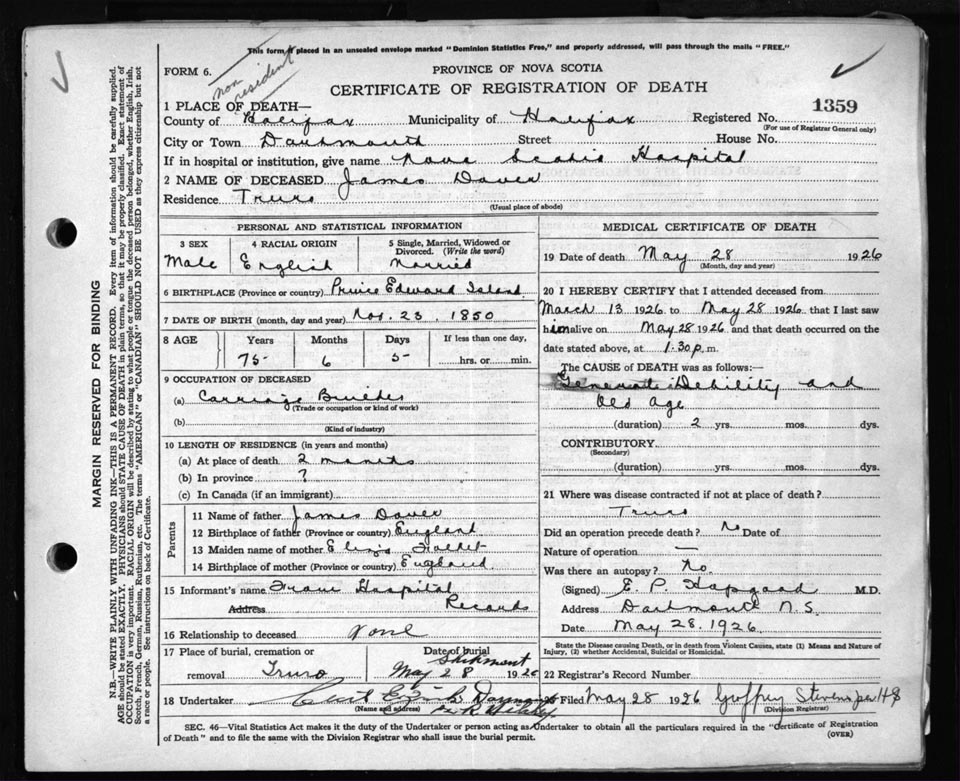 This form if placed in an unsealed envelope marked "Dominion Statistics Free," and properly addressed, will pass through the mails "FREE."
FORM 6.
non resident
PROVINCE OF NOVA SCOTIA
CERTIFICATE OF REGISTRATION OF DEATH
1359
1 PLACE OF DEATH—
County of Halifax Municipality of Halifax Registered No.
(For use of Registrar General only)
City or Town Dartmouth Street House No.
If in hospital or institution, give name Nova Scotia Hospital
2 NAME OF DECEASED James
Residence Truro
(Usual place of abode)
PERSONAL AND STATISTICAL INFORMATION
3 SEX 4 RACIAL ORIGIN 5 Single, Married, Widowed or Divorced. (Write the word)
Male English Married
6 BIRTHPLACE (Province or country) Prince Edward Island
7 DATE OF BIRTH (month, day and year) Nov. 23, 1850
8 AGE Years Months Days If less than one day,
75 6 5 hrs. or min.
9 OCCUPATION OF DECEASED
(a) Carriage Builder
(Trade or occupation or kind of work)
(b)
(Kind of industry)
10 LENGTH OF RESIDENCE (in years and months)
(a) At place of death 2 months
(b) In province ?
(c) In Canada (if an immigrant)
Parents
11 Name of father James
12 Birthplace of father (Province or country) England
13 Maiden name of mother Eliza
14 Birthplace of mother (Province or country) England
15 Informant's name From Hospital
Address Records
16 Relationship to deceased none
17 Place of burial, cremation or removal Truro
Date of burial Shipment May 28 1926
18 Undertaker
(Name and address)
MEDICAL CERTIFICATE OF DEATH
19 Date of death May 28 1926
(Month, day and year)
20 I HEREBY CERTIFY that I attended deceased from
March 13 1926 to May 28 1926 that I last saw
him alive on May 28 1926 and that death occurred on the
date stated above, at 1.30 p. m.
The CAUSE of DEATH was as follows:—
Debility and
Old Age
(duration) 2 yrs. mos. dys.
CONTRIBUTORY
(Secondary)
(duration) yrs. mos. dys.
21 Where was disease contracted if not at place of death?
Truro
Did an operation precede death? No Date of
Nature of operation —
Was there an autopsy? No.
(Signed) E. P. Hopgood M.D.
Address Dartmouth N.S.
Date May 28. 1926.
State the Disease causing Death, or in death from Violent Causes, state (1) Means and Nature of Injury, (2) whether Accidental, Suicidal or Homicidal.
22 Registrar's Record Number
Filed May 28 1926 Stevens per
(Division Registrar)
SEC. 46—Vital Statistics Act makes it the duty of the Undertaker or person acting as Undertaker to obtain all the particulars required in the "Certificate of Registration
of Death" and to file the same with the Division Registrar who shall issue the burial permit.
(OVER)
MARGIN RESERVED FOR BINDING
N.B.—WRITE PLAINLY WITH UNFADING INK—THIS IS A PERMANENT RECORD. Every item of information should be carefully supplied.
AGE should be stated EXACTLY. PHYSICIANS should STATE CAUSE OF DEATH in plain terms, so that it may be properly classified. Exact statement of
OCCUPATION is very important. RACIAL ORIGIN will be described by stating to what people or tongue the deceased person belonged, whether English, Irish,
Scotch, French, German, Russian, Ruthenian, etc. The terms "AMERICAN" or "CANADIAN" SHOULD NOT BE USED as they express citizenship but not
a race or people. See instructions on back of Certificate.